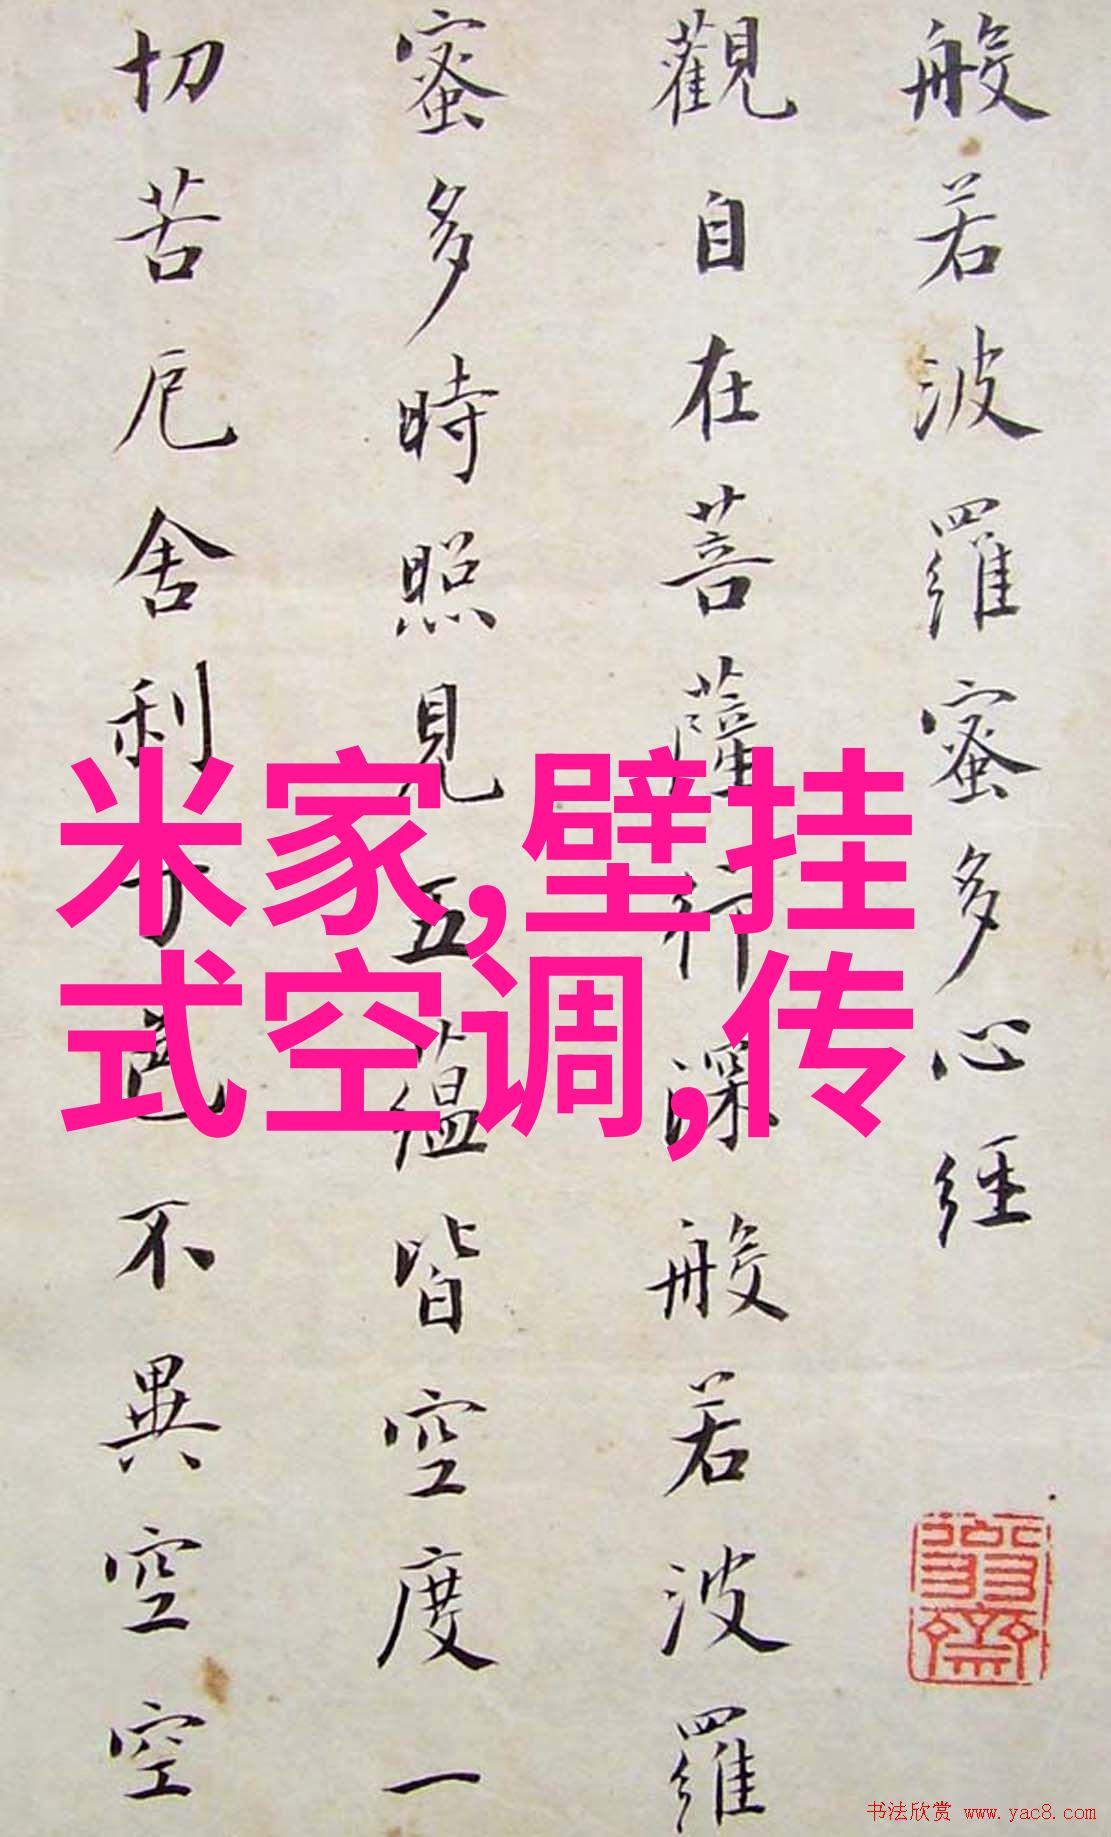 般若波羅蜜多心経
觀自在菩薩行深般若波羅
蜜多時照見五蘊皆空度一
切苦厄舍利子色不異空空
米家,壁挂
式空调,传
书法欣赏 www.yac8.com